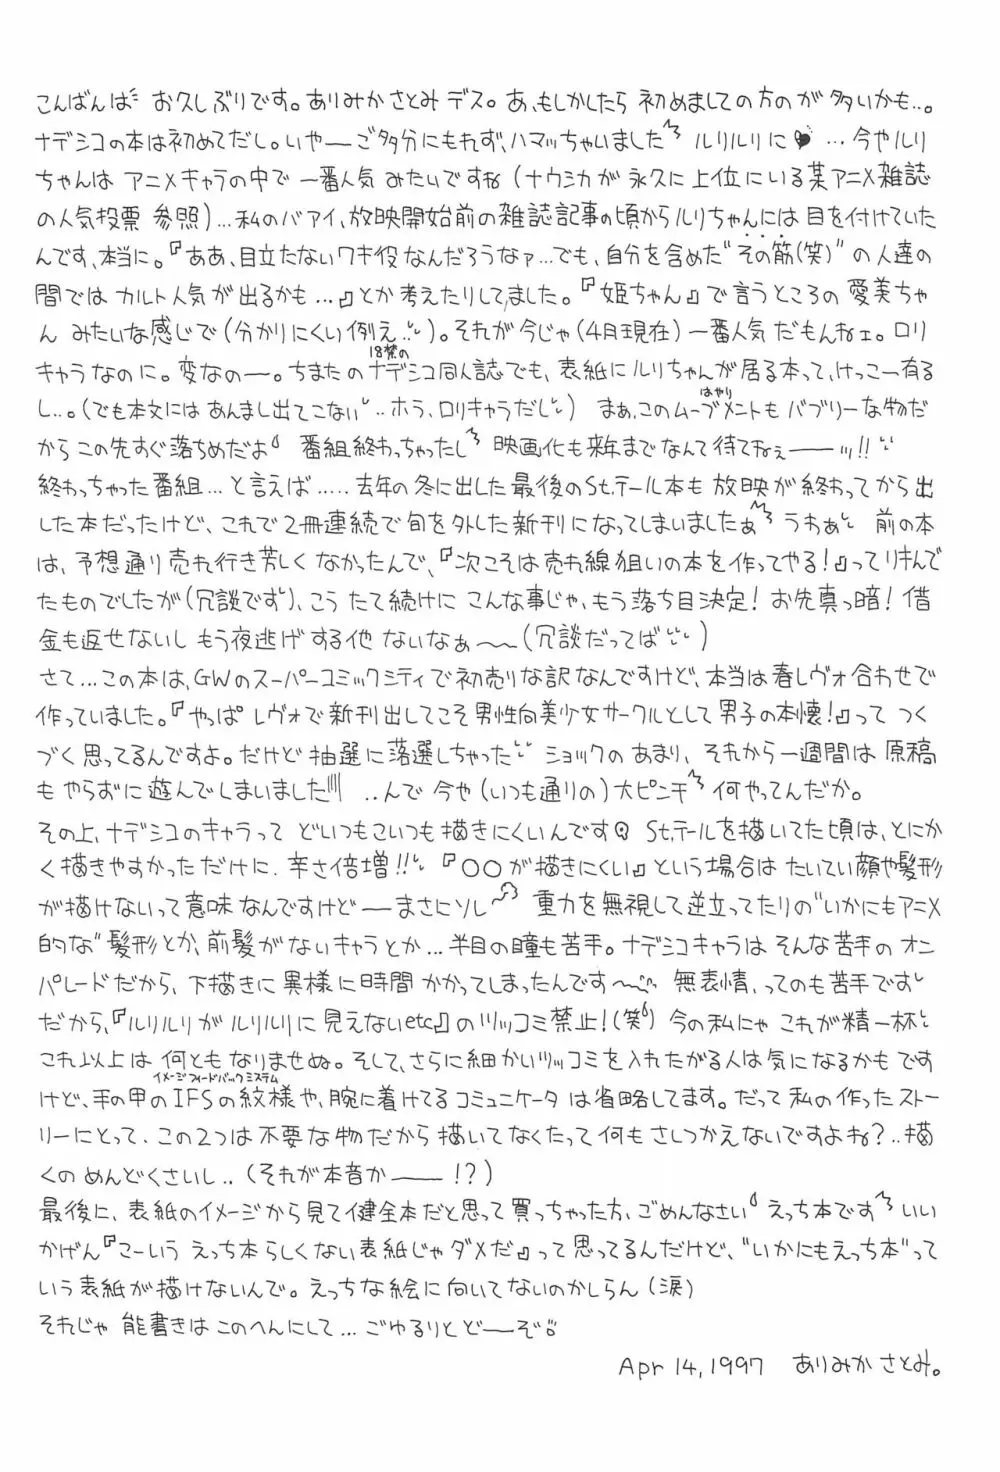 こんばんは お久しぶりです。ありみか さとみ デス。あ、もしかしたら 初めましての方のが 多いかも..。
ナデシコの本は初めてだし。いやーご多分にもれず、ハマっちゃいました ルリルリに♥ …今やルリ
ちゃんは アニメキャラの中で 一番人気 みたいですね(ナウシカが 永久に上位にいる某アニメ雑誌
の人気投票 参照)…私のバアイ、放映開始前の雑誌記事の頃からルリちゃんには 目を付けていた
んです、本当に。『ああ、目立たないワキ役なんだろうなァ…でも、自分を含めた"その筋(笑)"の人達の
間では カルト人気が出るかも…』とか考えたりしてました。『姫ちゃん』で言うところの 愛美ちゃ
ん みたいな感じで(分かりにくい例え..)。それが今じゃ(4月現在)一番人気だもんねェ。ロリ
キャラなのに。変なのー。ちまたの18禁のナデシコ同人誌でも、表紙にルリちゃんが居る本って、けっこー有る
し..。(でも本文には あんまし出てこない..ホラ、ロリキャラだし) まぁ、このムーブメント(はやり)も バブリーな物だ
から この先すぐ落ちめだよ 番組終わっちゃったし 映画化も来年までなんて待てねぇーーッ!!
終わっちゃった番組…と言えば…..去年の冬に出した最後のSt.テール本も 放映が終わってから出
した本だったけど、これで2冊連続で旬を外した新刊になってしまいましたぁ うわぁ 前の本
は、予想通り売れ行き芳しくなかったんで、『次こそは売れ線狙いの本を作ってやる!』ってリキんで
たものでしたが(冗談です)、こう たて続けに こんな事じゃ、もう落ち目決定!お先真っ暗!借
金も返せないし もう夜逃げする他 ないなぁ〜(冗談だってば)
さて…この本は、GWのスーパーコミックシティで初売りな訳なんですけど、本当は春レヴォ合わせで
作っていました。『やっぱ レヴォで新刊出してこそ男性向美少女サークルとして男子の本懐!』って つく
づく思ってるんですよ。だけど抽選に落選しちゃった ショックの あまり、それから一週間は 原稿
も やらずに遊んでしまいました ..んで 今や(いつも通りの)大ピンチ 何やってんだか。
その上、ナデシコのキャラって どいつもこいつも描きにくいんです St.テールを描いてた頃は、とにか
く描きやすかっただけに、辛さ倍増!! 『○○が描きにくい』という場合は たいてい顔や髪形
が描けないって意味なんですけどーまさにソレ 重力を無視して逆立ってたりの"いかにもアニメ
的な"髪形とか、前髪がないキャラとか…半目の瞳も苦手。ナデシコキャラは そんな苦手の オン
パレードだから、下描きに異様に時間かかってしまったんです〜 無表情、ってのも苦手です
だから、『ルリルリが ルリルリに見えないetc』の ツッコミ禁止!(笑) 今の私にゃ これが精一杯
これ以上は 何とも なりませぬ。そして、さらに細かいツッコミを入れたがる人は気になるかも です
けど、手の甲のIFS(イメージフィードバックシステム)の紋様や、腕に着けてるコミュニケータ は省略してます。だって 私の作ったストー
リーにとって、この2つは不要な物だから描いてなくたって何もさしつかえないですよね?..描
くの めんどくさいし..(それが本音かーー!?)
最後に、表紙のイメージから見て健全本だと思って買っちゃった方、ごめんなさい えっち本です いい
かげん『こーいう えっち本らしくない表紙じゃダメだ』って思ってるんだけど、"いかにもえっち本"って
いう表紙が描けないんで。えっちな絵に向いてないのかしらん(涙)
それじゃ 能書きは このへんにして…ごゆるりと どーぞ
Apr 14,1997 ありみか さとみ。